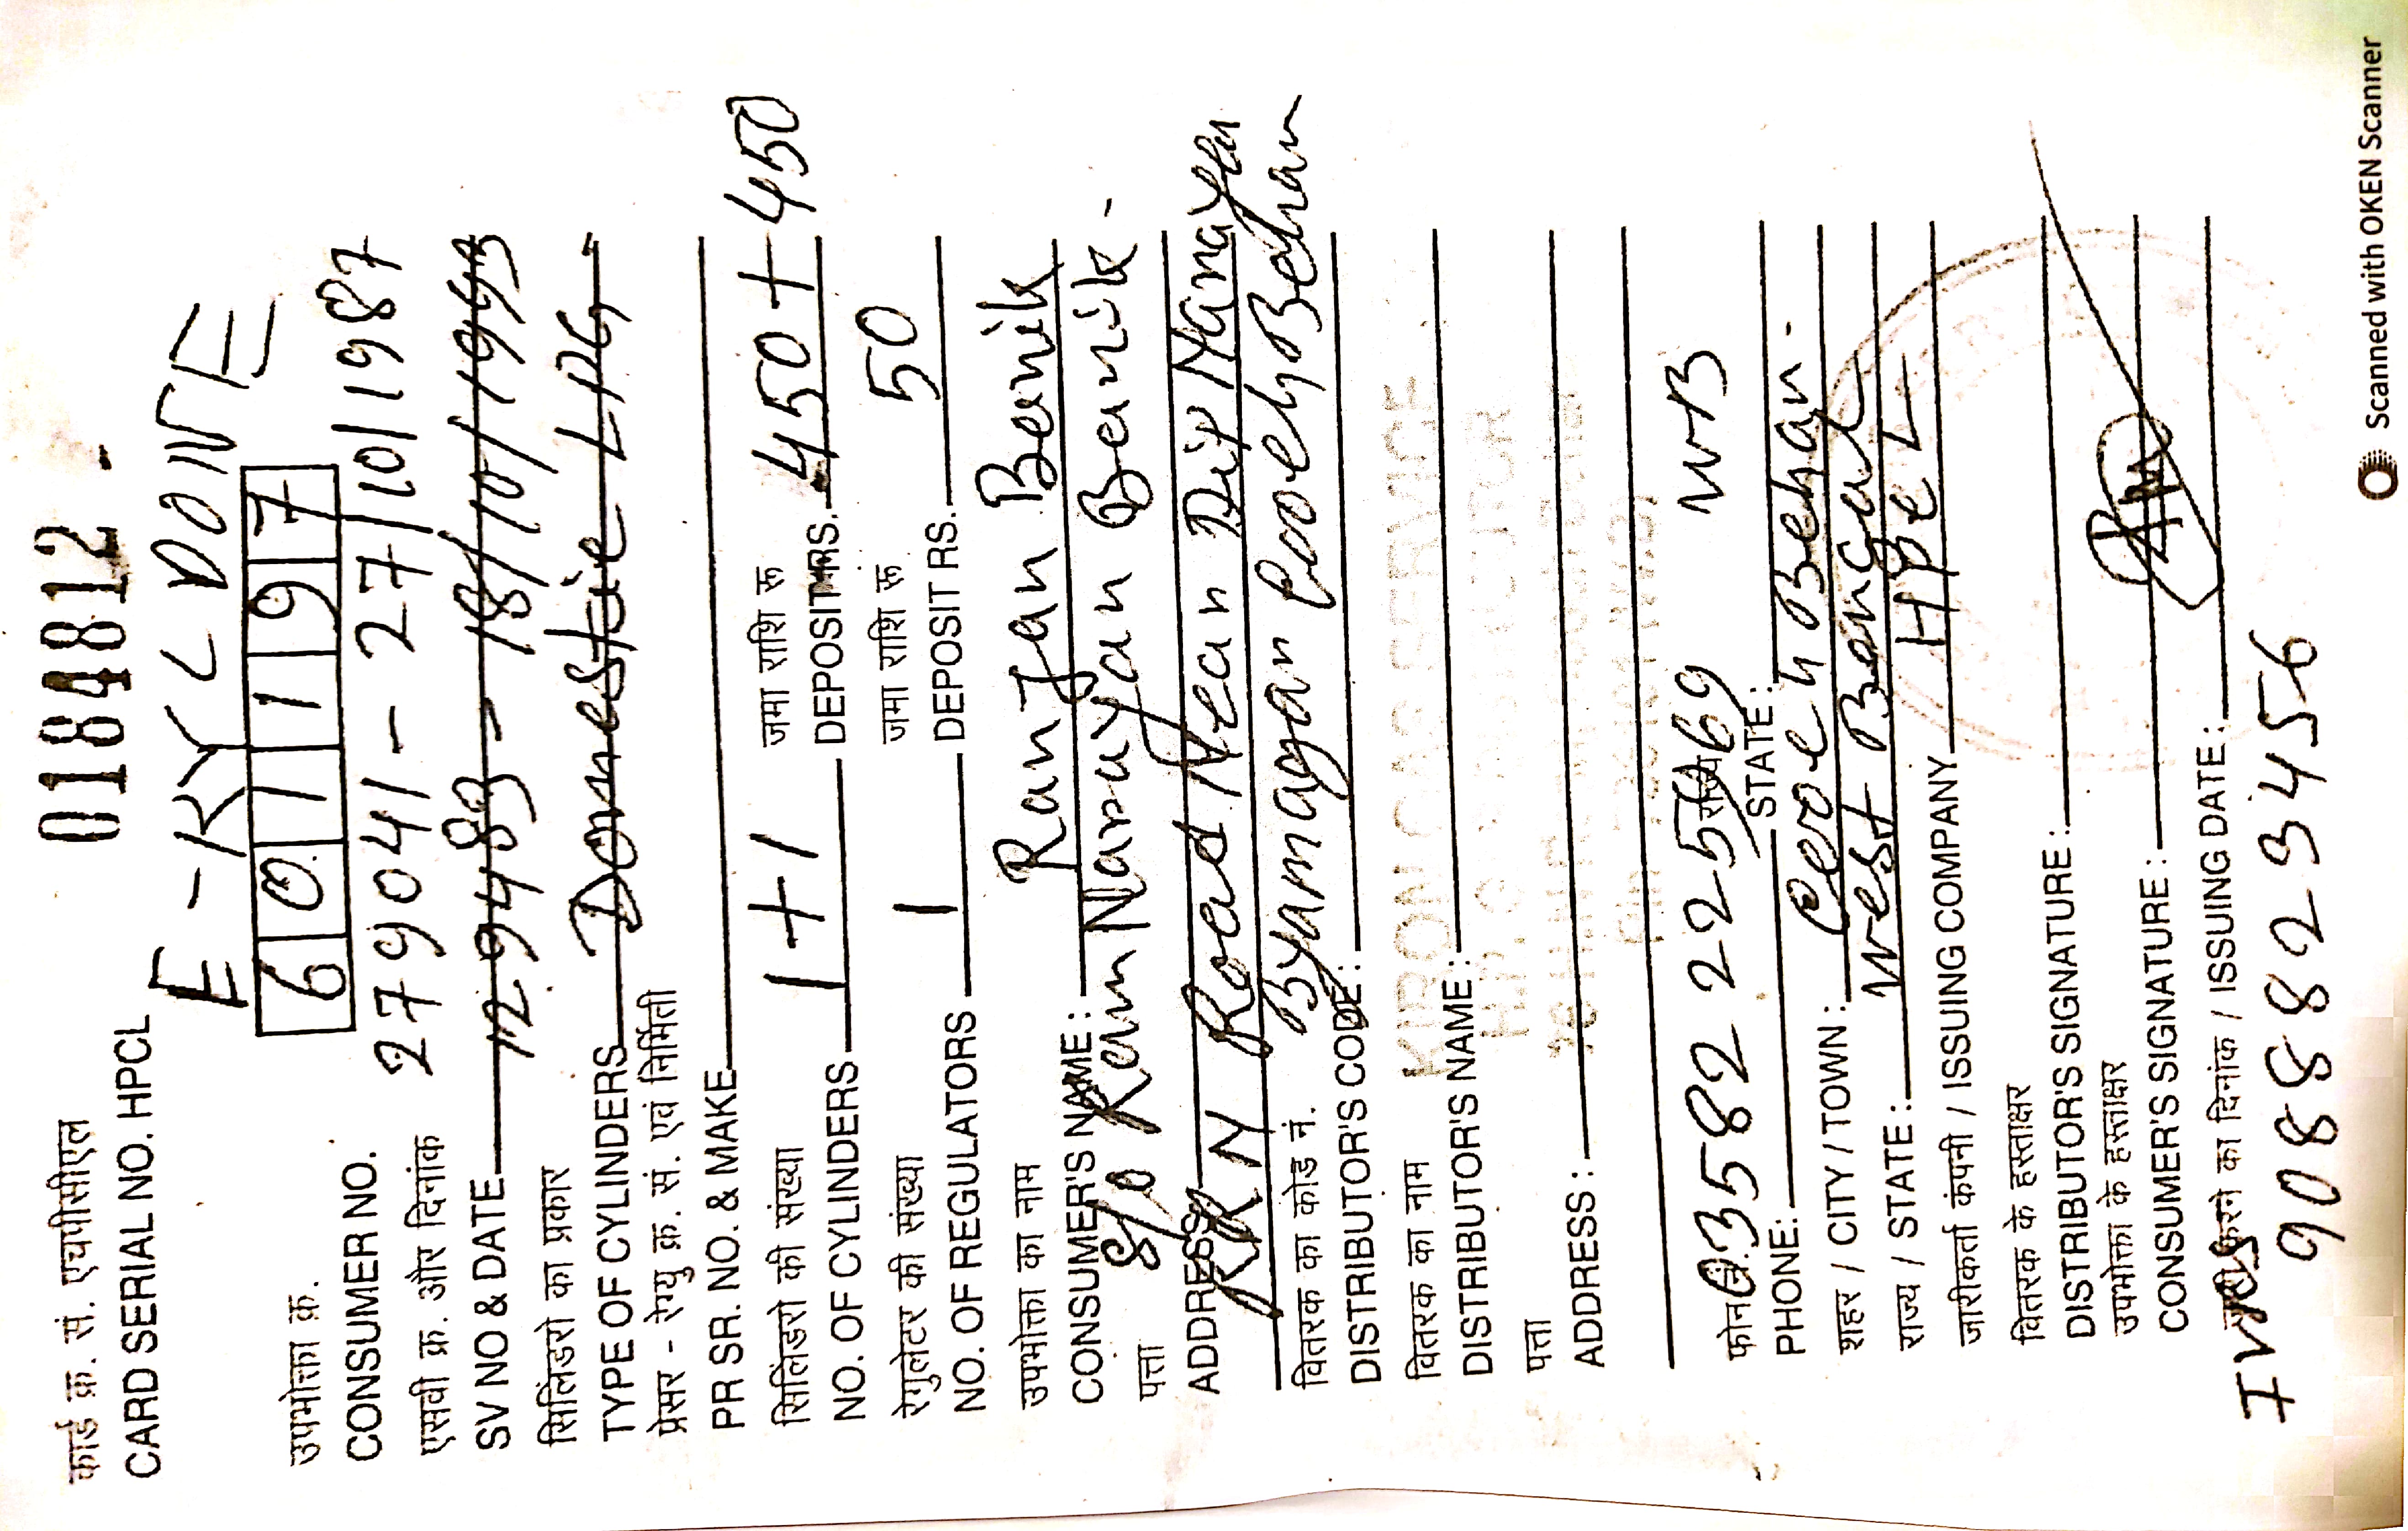 कार्ड क्र. सं. एचपीसीएल
CARD SERIAL NO. HPCL 0184812 -
E-KYC DONE
उपभोक्ता क्र.
CONSUMER NO. 601197
27904/- 27/10/1987
एसवी क्र. और दिनांक
SV NO & DATE 129483 - 18/10/1993
सिलिंडरो का प्रकार
TYPE OF CYLINDERS Domestic LPG
प्रेसर - रेग्यु क्र. सं. एवं निर्मिती
PR SR. NO. & MAKE
सिलिंडरो की संख्या जमा राशि रू
NO. OF CYLINDERS 1+1 DEPOSIT RS. 450 + 450
रेगुलेटर की संख्या जमा राशि रू
NO. OF REGULATORS 1 DEPOSIT RS. 50
उपभोक्ता का नाम
CONSUMER'S NAME: Ranjan Banik
पत्ता S/o Ram Narayan Banik -
ADDRESS RRN Road Near Dip Narayan
Byamagar Cooch Behar
वितरक का कोड नं.
DISTRIBUTOR'S CODE:
KIRON GAS SERVICE
वितरक का नाम
DISTRIBUTOR'S NAME:
पत्ता
ADDRESS:
फोन 03582 225969 WB
PHONE: STATE:
शहर / CITY / TOWN: Cooch Behar -
राज्य / STATE: West Bengal
जारीकर्ता कंपनी / ISSUING COMPANY HPCL
वितरक के हस्ताक्षर
DISTRIBUTOR'S SIGNATURE:
उपभोक्ता के हस्ताक्षर
CONSUMER'S SIGNATURE:
करने का दिनांक / ISSUING DATE:
IVRS 9088823456
Scanned with OKEN Scanner